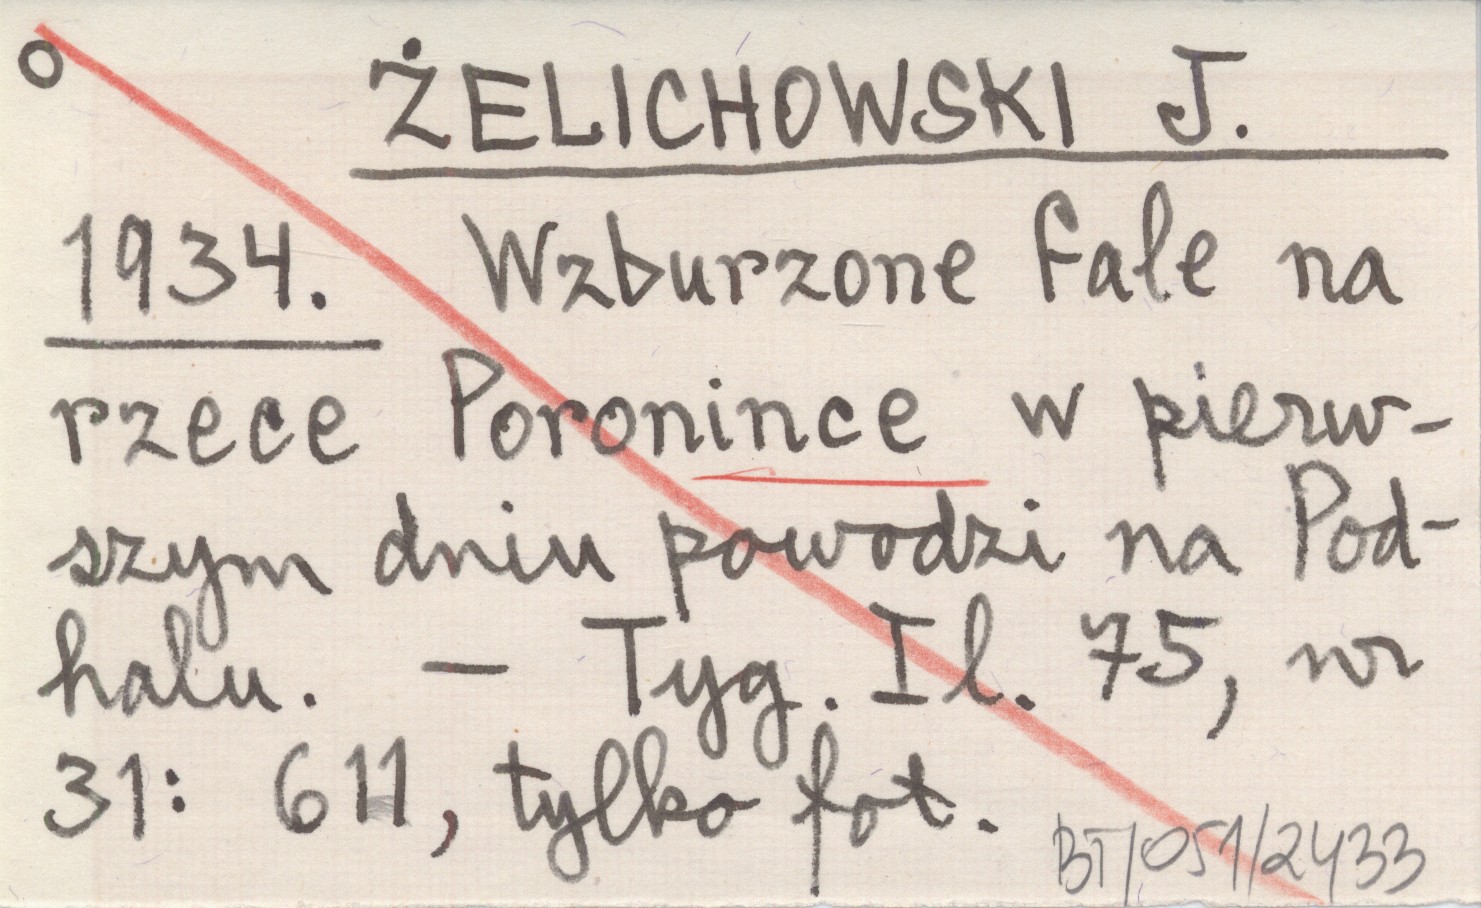 ŻELICHOWSKI J.
1934. Wzburzone fale na
rzece Poronince w pierw-
szym dniu powodzi na Pod-
halu. — Tyg. Il. 75, nr
31: 611, tylko fot.
BT/051/2433